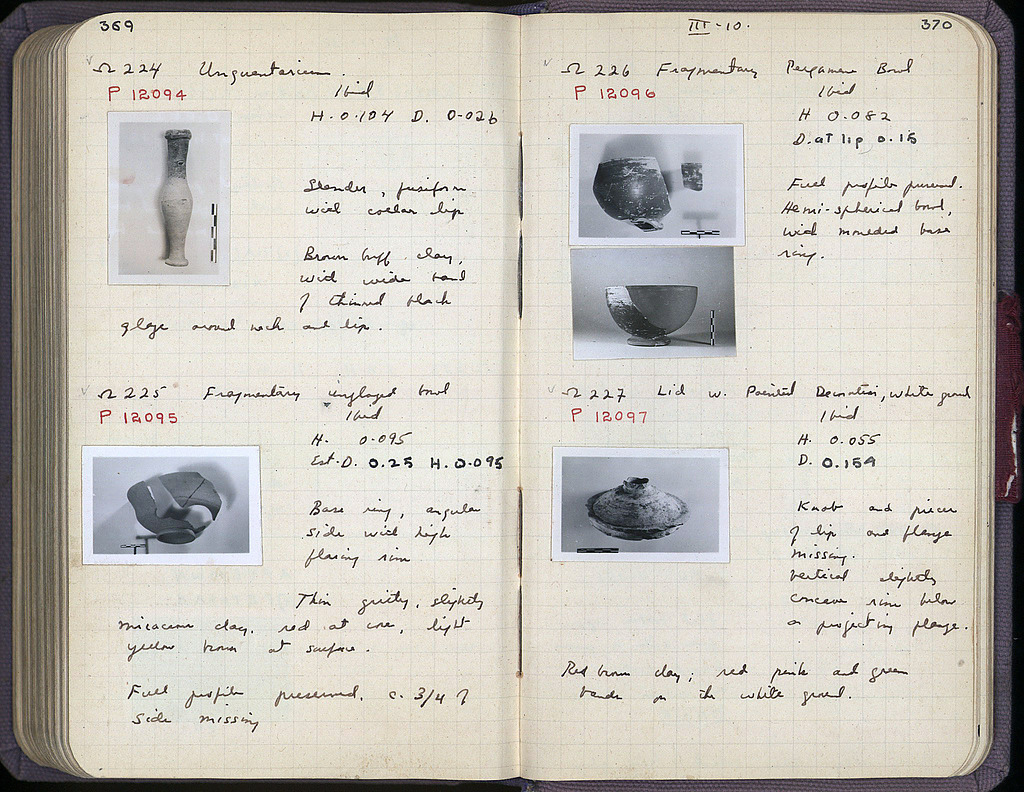 369
Ω 224 Unguentarium.
P 12094
Ibid
H. 0.104 D. 0.026
Slender, fusiform
with collar lip
Brown buff clay,
with wide band
of thinned black
glaze around neck and lip.
Ω 225 Fragmentary unglazed bowl
P 12095
Ibid
H. 0.095
Est. D. 0.25 H. 0.095
Base ring, angular
side with high
flaring rim
Thin gritty, slightly
micaceous clay, red at core, light
yellow brown at surface.
Full profile preserved. c. 3/4 of
side missing
III-10.
370
Ω 226 Fragmentary Pergamene Bowl
P 12096
Ibid
H 0.082
D. at lip 0.15
Full profile preserved.
Hemi-spherical bowl,
with moulded base
ring.
Ω 227 Lid w. Painted Decoration, white ground
P 12097
Ibid
H. 0.055
D. 0.159
Knob and pieces
of lip and flange
missing.
Vertical slightly
concave rim below
a projecting flange.
Red brown clay; red pink and green
bands on the white ground.